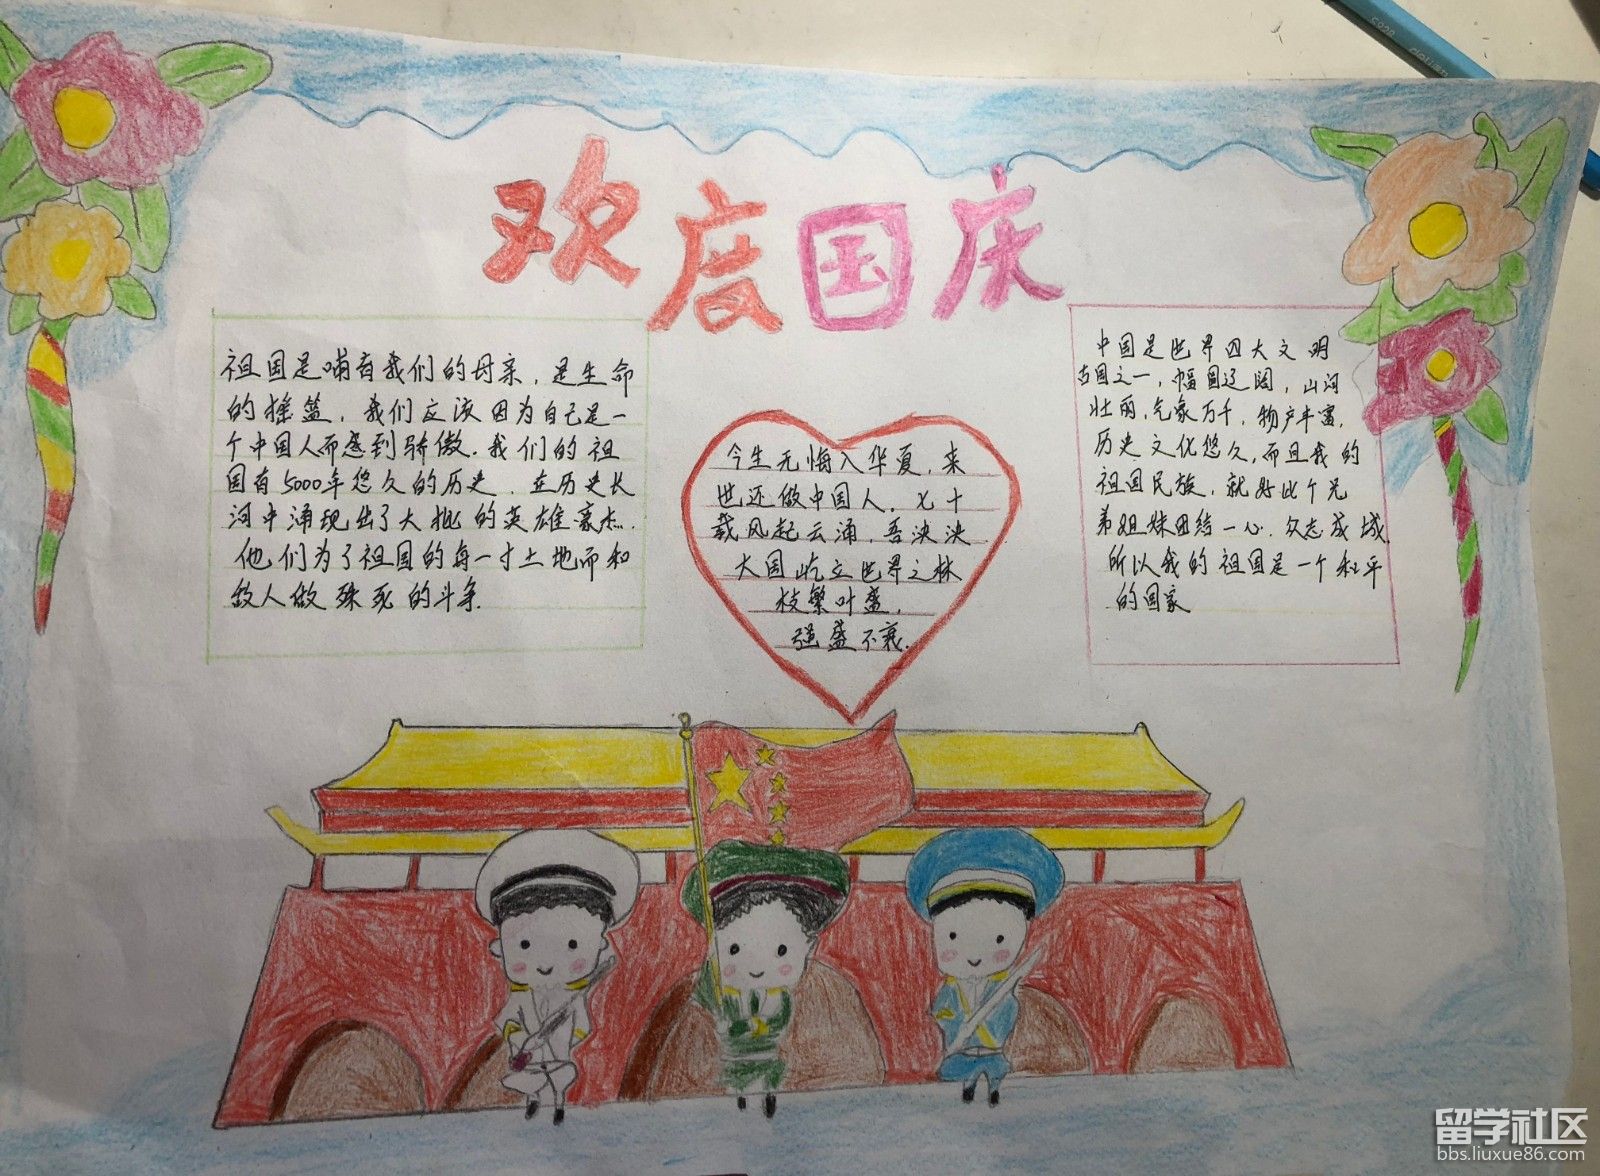 欢度国庆
祖国是哺育我们的母亲，是生命
的摇篮，我们应该因为自己是一
个中国人而感到骄傲．我们的祖
国有5000年悠久的历史．在历史长
河中涌现出了大批的英雄豪杰．
他们为了祖国的每一寸土地而和
敌人做殊死的斗争．
今生无悔入华夏，来
世还做中国人．七十
载风起云涌，吾泱泱
大国屹立世界之林
枝繁叶盛，
强盛不衰．
中国是世界四大文明
古国之一，幅圆辽阔，山河
壮丽，气象万千，物产丰富，
历史文化悠久，而且我的
祖国民族，就好比个兄
弟姐妹团结一心．众志成城．
所以我的祖国是一个和平
的国家
留学社区
bbs.liuxue86.com